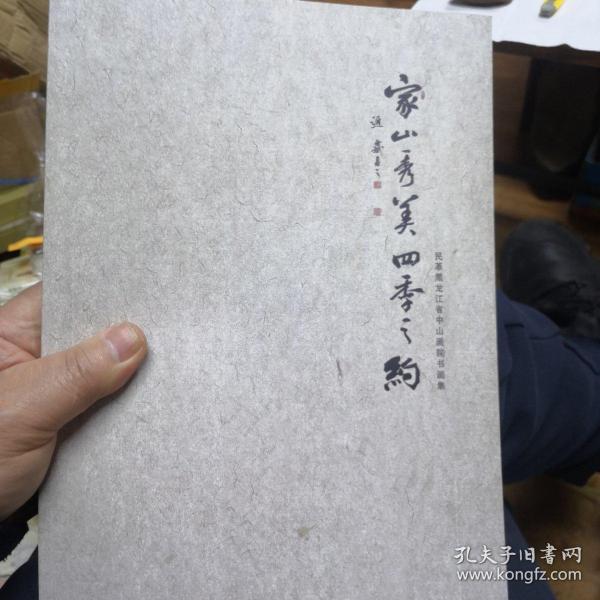 家山秀美四季之约
民革黑龙江省中山画院书画集
孔夫子旧书网
www.kongfz.com